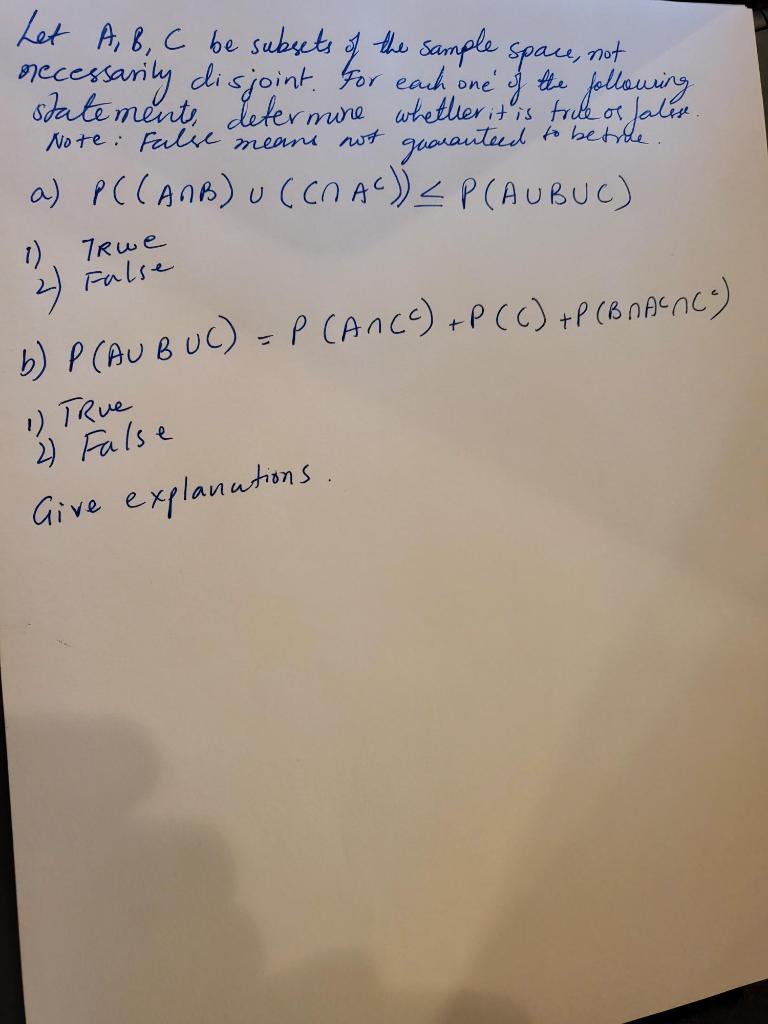 Let A, B, C be subsets of the sample space, not
necessarily disjoint. For each one of the following
statements, determine whether it is true or false.
Note: False means not guaranteed to be true.
a) P((A∩B) ∪ (C∩Aᶜ)) ≤ P(A∪B∪C)
1) TRue
2) False
b) P(A∪B∪C) = P(A∩Cᶜ) + P(C) + P(B∩Aᶜ∩Cᶜ)
1) TRue
2) False
Give explanations.